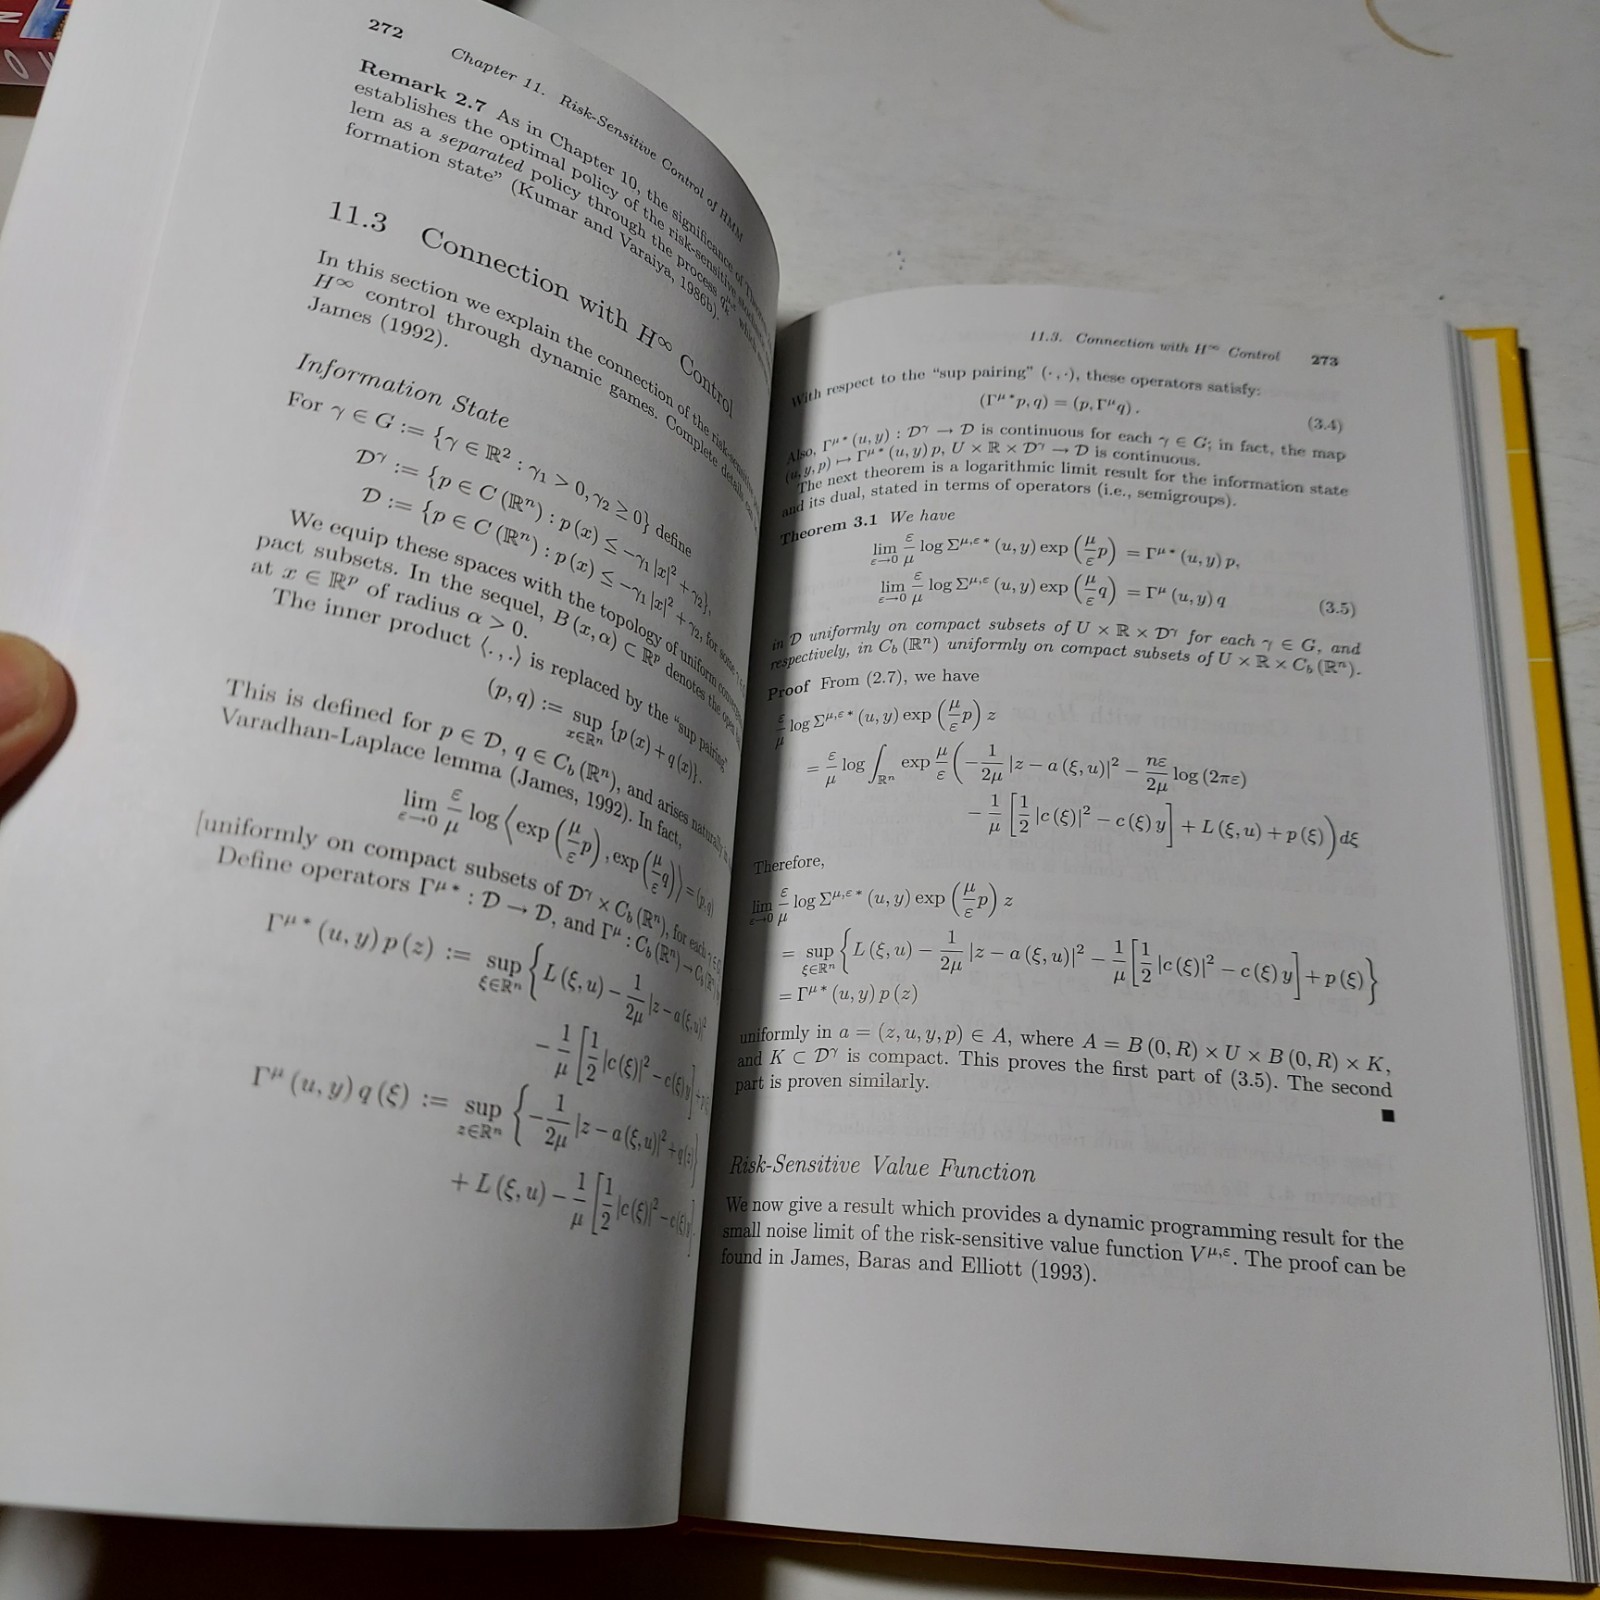 272
Chapter 11. Risk-Sensitive Control of HMM
Remark 2.7 As in Chapter 10, the significance of Theorem
establishes the optimal policy of the risk-sensitive
lem as a separated policy through the process
formation state” (Kumar and Varaiya, 1986b).
11.3 Connection with H∞ Control
In this section we explain the connection of the risk-sensitive
H∞ control through dynamic games. Complete details
James (1992).
Information State
For γ ∈ G := {γ ∈ ℝ² : γ₁ > 0, γ₂ ≥ 0} define
Dᵞ := {p ∈ C (ℝⁿ) : p (x) ≤ −γ₁ |x|² + γ₂},
D := {p ∈ C (ℝⁿ) : p (x) ≤ −γ₁ |x|² + γ₂, for some
We equip these spaces with the topology of uniform
pact subsets. In the sequel, B (x, α) ⊂ ℝᵖ denotes the open
at x ∈ ℝᵖ of radius α > 0.
The inner product ⟨., .⟩ is replaced by the “sup pairing”
(p, q) := sup_{x∈ℝⁿ} {p (x) + q (x)}.
This is defined for p ∈ D, q ∈ C_b (ℝⁿ), and arises naturally
Varadhan-Laplace lemma (James, 1992). In fact,
lim_{ε→0} ε/μ log ⟨exp (μ/ε p), exp (μ/ε q)⟩ = (p, q)
[uniformly on compact subsets of Dᵞ × C_b (ℝⁿ), for each
Define operators Γ^{μ *} : D → D, and Γ^μ : C_b (ℝⁿ) → C_b (ℝⁿ)
Γ^{μ *} (u, y) p (z) := sup_{ξ∈ℝⁿ} {L (ξ, u) − 1/2μ |z − a (ξ, u)|²
− 1/μ [1/2 |c (ξ)|² − c (ξ) y]
Γ^μ (u, y) q (ξ) := sup_{z∈ℝⁿ} {− 1/2μ |z − a (ξ, u)|² + q (z)
+ L (ξ, u) − 1/μ [1/2 |c (ξ)|² − c (ξ) y]
11.3. Connection with H∞ Control 273
With respect to the “sup pairing” (·, ·), these operators satisfy:
(Γ^{μ *} p, q) = (p, Γ^μ q) . (3.4)
Also, Γ^{μ *} (u, y) : Dᵞ → D is continuous for each γ ∈ G; in fact, the map
(u, y, p) ↦ Γ^{μ *} (u, y) p, U × ℝ × Dᵞ → D is continuous.
The next theorem is a logarithmic limit result for the information state
and its dual, stated in terms of operators (i.e., semigroups).
Theorem 3.1 We have
lim_{ε→0} ε/μ log Σ^{μ,ε *} (u, y) exp (μ/ε p) = Γ^{μ *} (u, y) p,
lim_{ε→0} ε/μ log Σ^{μ,ε} (u, y) exp (μ/ε q) = Γ^μ (u, y) q (3.5)
in D uniformly on compact subsets of U × ℝ × Dᵞ for each γ ∈ G, and
respectively, in C_b (ℝⁿ) uniformly on compact subsets of U × ℝ × C_b (ℝⁿ).
Proof From (2.7), we have
ε/μ log Σ^{μ,ε *} (u, y) exp (μ/ε p) z
= ε/μ log ∫_{ℝⁿ} exp μ/ε (− 1/2μ |z − a (ξ, u)|² − nε/2μ log (2πε)
− 1/μ [1/2 |c (ξ)|² − c (ξ) y] + L (ξ, u) + p (ξ)) dξ
Therefore,
lim_{ε→0} ε/μ log Σ^{μ,ε *} (u, y) exp (μ/ε p) z
= sup_{ξ∈ℝⁿ} {L (ξ, u) − 1/2μ |z − a (ξ, u)|² − 1/μ [1/2 |c (ξ)|² − c (ξ) y] + p (ξ)}
= Γ^{μ *} (u, y) p (z)
uniformly in a = (z, u, y, p) ∈ A, where A = B (0, R) × U × B (0, R) × K,
and K ⊂ Dᵞ is compact. This proves the first part of (3.5). The second
part is proven similarly.
■
Risk-Sensitive Value Function
We now give a result which provides a dynamic programming result for the
small noise limit of the risk-sensitive value function V^{μ,ε}. The proof can be
found in James, Baras and Elliott (1993).